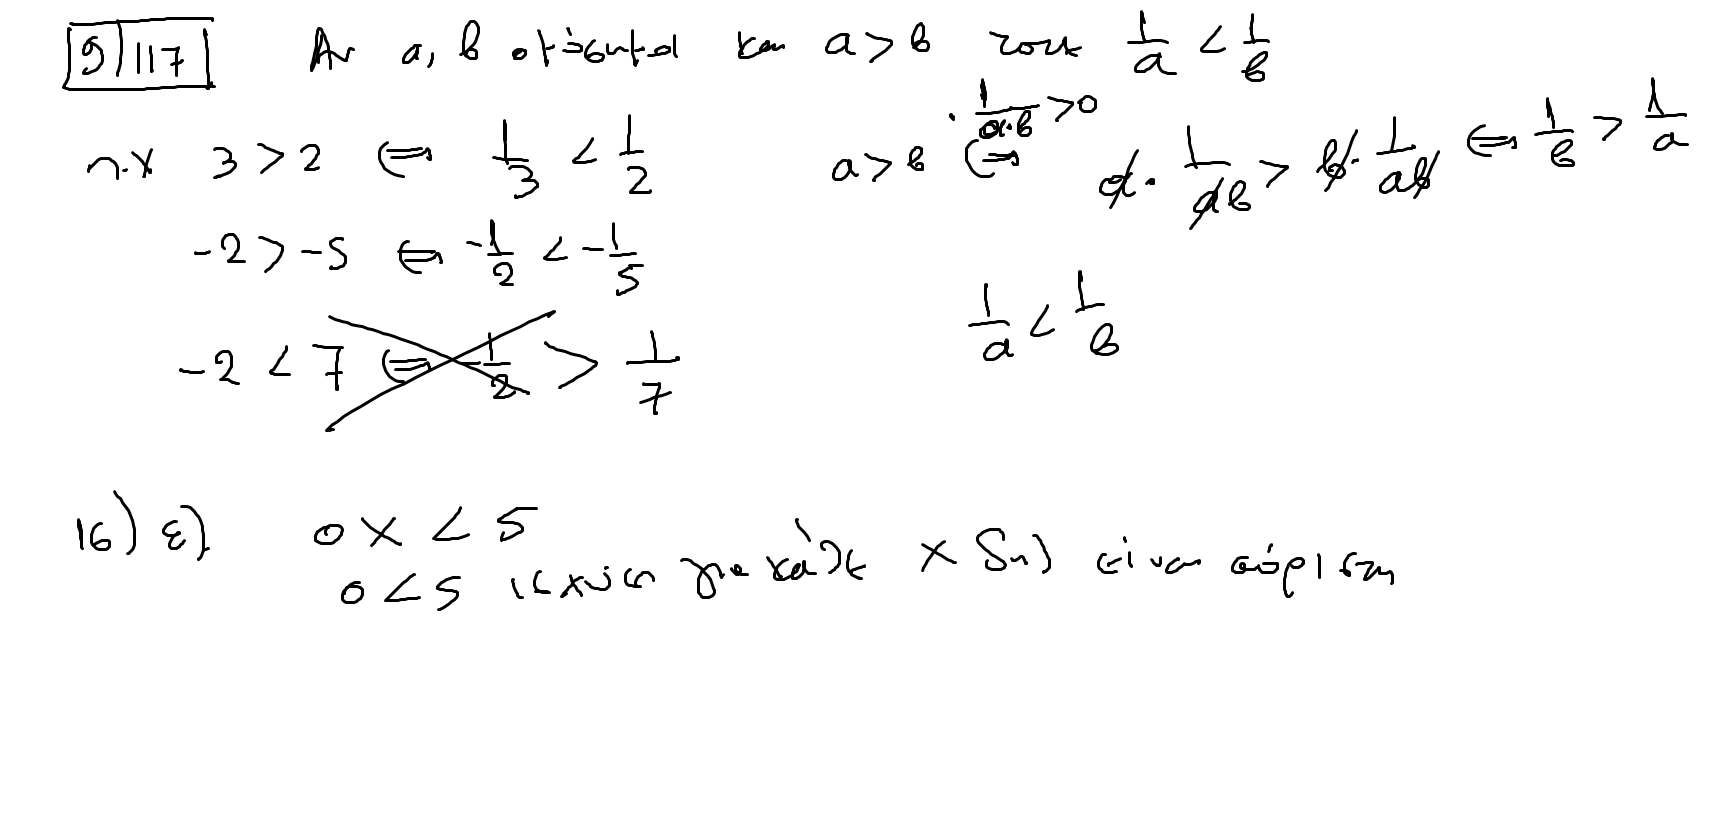 9/117 Αν α, β ομόσημοι και α > β τότε 1/α < 1/β
π.χ 3 > 2 ⇔ 1/3 < 1/2
-2 > -5 ⇔ -1/2 < -1/5
-2 < 7 ⇔ -1/2 > 1/7
α > β ⇔ · 1/α·β > 0 α · 1/αβ > β · 1/αβ ⇔ 1/β > 1/α
1/α < 1/β
16) ε) 0x < 5
0 < 5 ισχύει για κάθε x δηλ είναι αόριστη